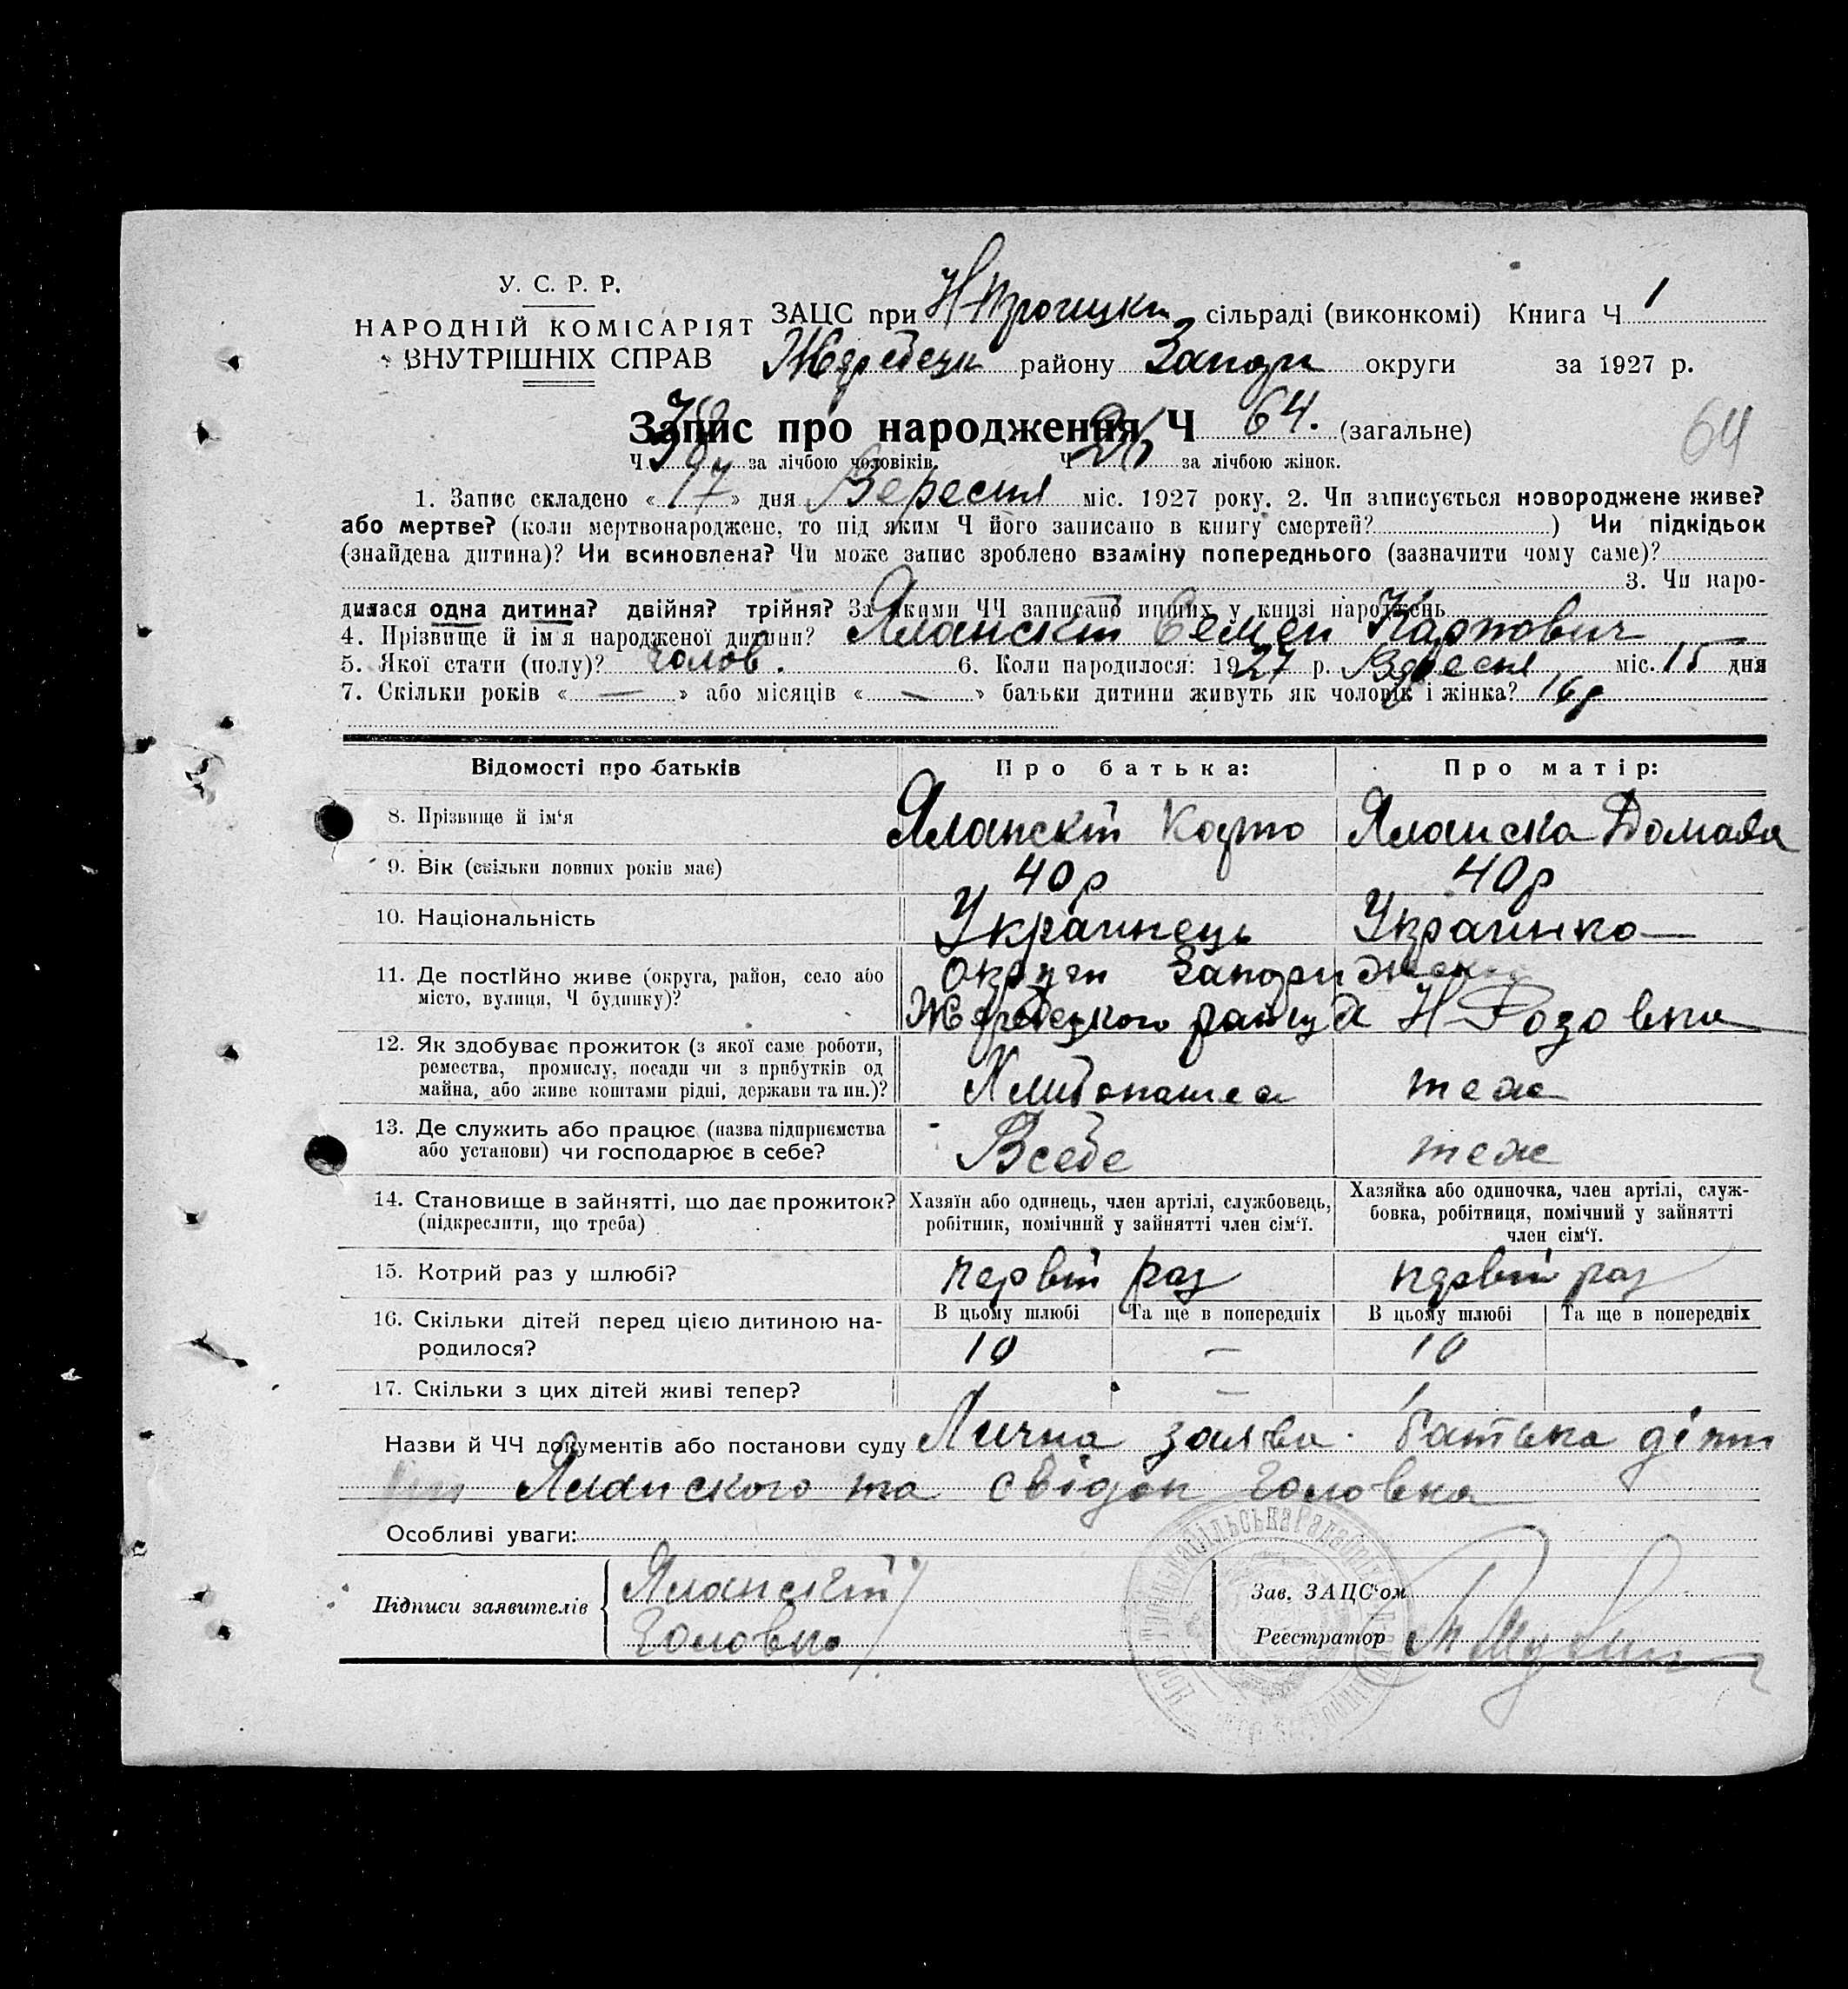 У. С. Р. Р.
НАРОДНІЙ КОМІСАРІЯТ
ВНУТРІШНІХ СПРАВ
ЗАЦС при Н Троицки сільраді (виконкомі) Книга Ч 1
Жеребецк району Запоріж округи за 1927 р.
Запис про народження Ч 64. (загальне)
64
Ч за лічбою чоловіків. Ч 26 за лічбою жінок.
1. Запис складено « 17 » дня Вересня міс. 1927 року. 2. Чи записується новороджене живе?
або мертве? (коли мертвонароджене, то під яким Ч його записано в книгу смертей? ) Чи підкідьок
(знайдена дитина)? Чи всиновлена? Чи може запис зроблено взаміну попереднього (зазначити чому саме)?
3. Чи наро-
дилася одна дитина? двійня? трійня? За якими ЧЧ записано инших у книзі народжень
4. Прізвище й ім'я народженої дитини? Яланскій Семен Карпович
5. Якої стати (полу)? чолов. 6. Коли народилося: 1927 р. Вересня міс. 15 дня
7. Скільки років « — » або місяців « — » батьки дитини живуть як чоловік і жінка? 16 р
Відомості про батьків Про батька: Про матір:
8. Прізвище й ім'я Яланскій Карпо Яланска Домаха
9. Вік (скільки повних років має) 40 р 40 р
10. Національність Украинець Украинка
11. Де постійно живе (округа, район, село або Округи Запоріжск
місто, вулиця, Ч будинку)? Жеребецкого району Н-Розовка
12. Як здобуває прожиток (з якої саме роботи,
ремества, промислу, посади чи з прибутків од
майна, або живе коштами рідні, держави та ин.)? Хлибопашеа теж
13. Де служить або працює (назва підприємства
або установи) чи господарює в себе? Всебе теж
14. Становище в зайнятті, що дає прожиток? Хазяїн або одинець, член артілі, службовець, Хазяйка або одиночка, член артілі, служ-
(підкреслити, що треба) робітник, помічний у зайнятті член сім'ї. бовка, робітниця, помічний у зайнятті
член сім'ї.
15. Котрий раз у шлюбі? первій раз первій раз
16. Скільки дітей перед цією дитиною на- В цьому шлюбі Та ще в попередніх В цьому шлюбі Та ще в попередніх
родилося? 10 — 10
17. Скільки з цих дітей живі тепер? —
Назви й ЧЧ документів або постанови суду Лична заява батька діти
Яланского та свідок Головка
Особливі уваги:
Підписи заявителів Яланскій Зав. ЗАЦС'ом
Головко Реєстратор